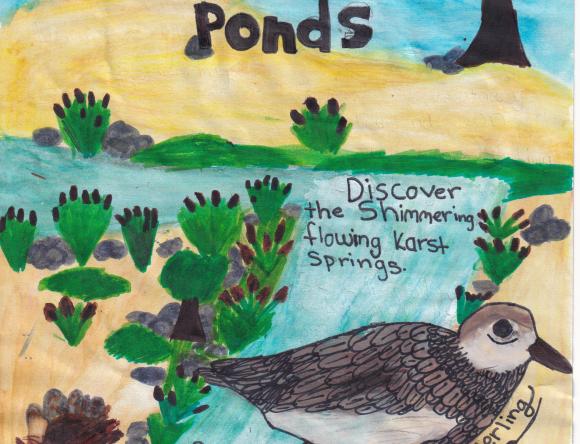 Ponds
Discover
the Shimmering
flowing Karst
Springs.